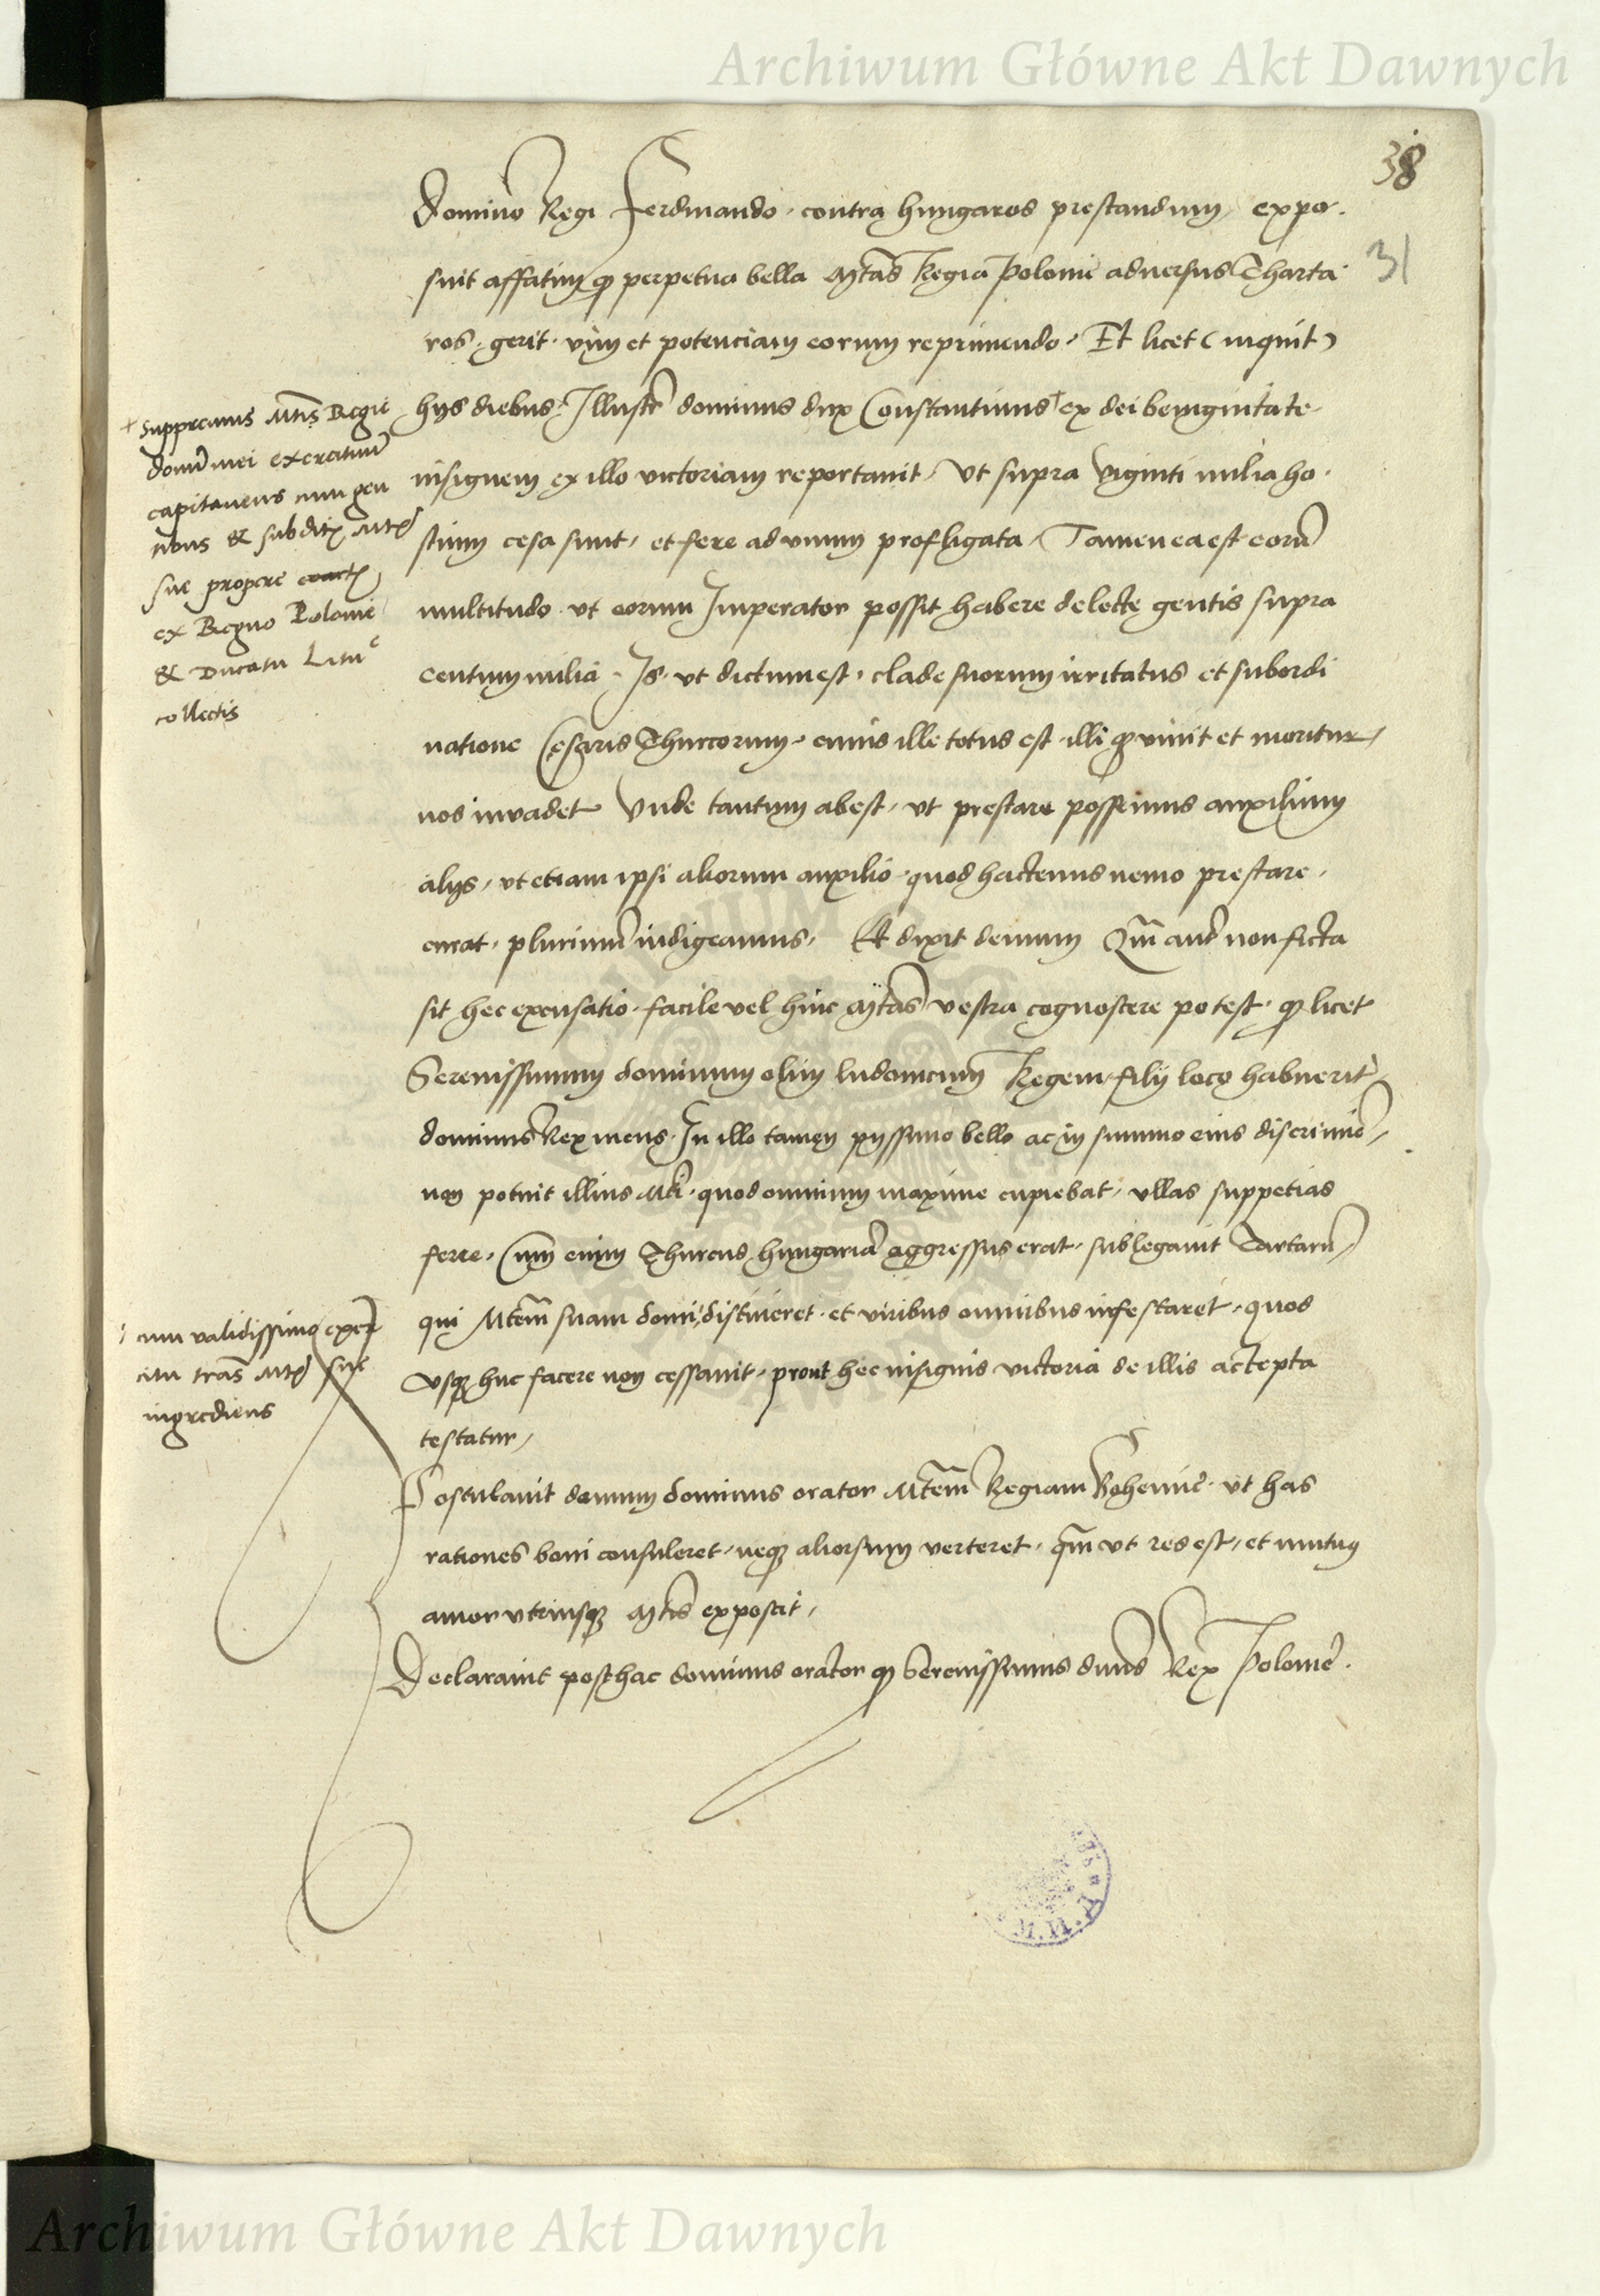 Archiwum Główne Akt Dawnych
38
31
Domino Regi Ferdinando · contra hungaros prestandum, expo·
suit affatim ꝙ perpetua bella Mtas Regia Polonie adversus Tharta·
ros · gerit · vim et potenciam eorum reprimendo · Et licet (inquit)
hys diebus · Illustr dominus dux Constantinus ex dei benignitate
insignem ex illo victoriam reportavit, Vt supra viginti milia ho·
stium cesa sunt, et fere ad vnum profligata, Tamen ea est eorū
multitudo · vt eorum Imperator possit habere delecte gentis supra
centum milia · Is · vt dictum est · clade suorum irritatus et subordi
natione Cesaris Thurcorum · cuius ille totus est · illi ꝙ vivit et moritur,
nos invadet Vnde tantum abest, vt prestare possimus auxilium
alijs, vt etiam ipsi aliorum auxilio · quod hactenus nemo prestare,
curat · plurimū indigeamus, Et dixit demum Qm̄ autē non ficta
sit hec excusatio · facile vel hinc Mtas vestra cognoscere potest · ꝙ licet
Serenissimum dominum olim ludovicum Regem · filij loco habuerit,
dominus Rex meus · In illo tamen pyssimo bello ac in summo eius discrimīe,
non potuit illius Mti · quod omnium maxime cupiebat, vllas suppetias
ferre · Cum enim Thurcus hungariā aggressus erat · sublegavit Tartarū,
qui Mtem suam domi distineret · et viribus omnibus infestaret · quod
vsqꝫ huc facere non cessavit · prout hec insignis victoria de illis accepta
testatur,
Postulavit demum dominus orator Mtem Regiam Bohemie · vt has
rationes boni consuleret, neqꝫ aliorsum verteret · qm̄ vt res est, et mutuus
amor vtriusqꝫ Mtis exposcit,
Declaravit posthac dominus orator ꝙ Serenissimus dnus Rex Polonie ·
+ Suppremus Mtis Regie
domī mei exercituū
capitaneus cum gen
tibus & subditis Mtis
sue propere
ex Regno Polonie
& Ducatu Litue
collectis
cum validissimo exer
citu tras Mtis sue
ingrediens
Archiwum Główne Akt Dawnych